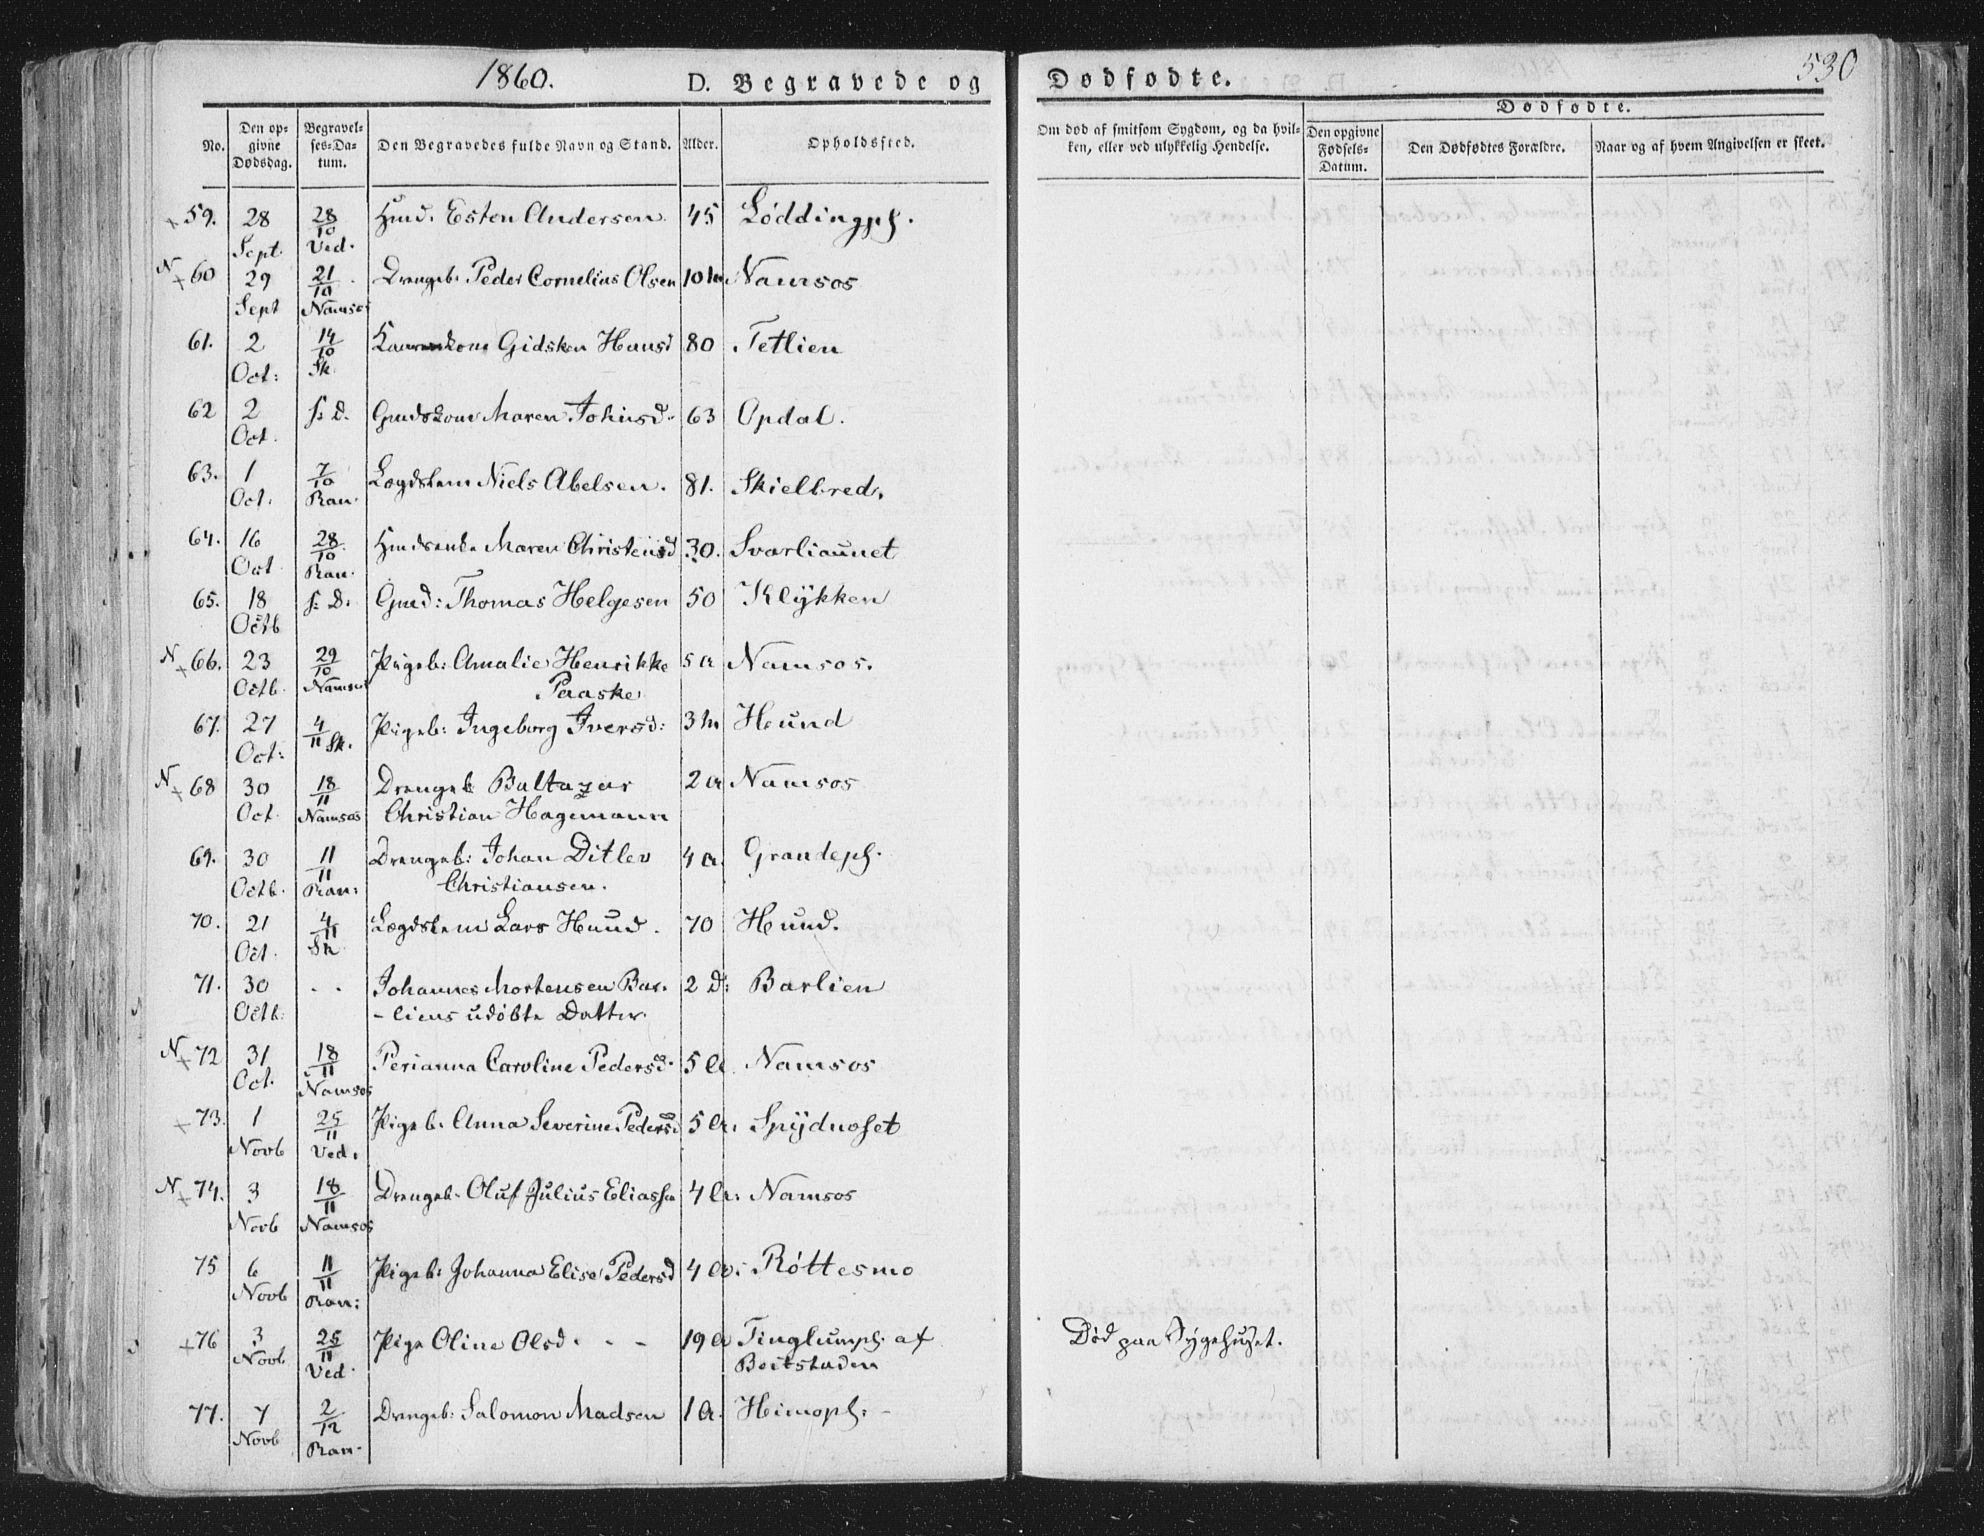 1860.
D. Begravede og
Dødfødte.
530
No.
Den opgivne Dødsdag.
Begravelses-Datum.
Den Begravedes fulde Navn og Stand.
Alder.
Opholdssted.
Om død af smitsom Sygdom, og da hvilken, eller ved ulykkelig Hendelse.
Dødfødte.
Den opgivne Fødsels-Datum.
Den Dødfødtes Forældre.
Naar og af hvem Angivelsen er skeet.
+ 59. 28 Sept. 28/10 Ved. Hmd. Esten Andersen 45 Løddingpl.
N + 60 29 Sept 21/10 Namsos Drengeb. Peder Cornelius Olsen 10 m Namsos
61. 2 Oct: 14/10 Sk. Gidsken Hansd 80 Tetlien
62 2 Oct. s. D. Gmdskone Maren Johnsd. 63 Opdal.
63. 1 Oct. 7/10 Ran. Lægdslem Niels Abelsen. 81. Skielbred.
64. 16 Oct 28/10 Ran. Hmdsenke Maren Christensd 30. Svarliaunet
65. 18 Octb s. D. Gmd: Thomas Helgesen 50 Klykken
N + 66. 23 Octb. 29/10 Namsos Pigeb: Amalie Henrikke Paaske 5 a Namsos.
67. 27 Oct: 4/11 Sk. Pigeb: Ingeborg Iversd: 3 m Hund
N + 68 30 Oct 18/11 Namsos Drengeb Baltazar
Christian Hagemann 2 a Namsos
69. 30 Octb. 11/11 Ran: Drengeb: Johan Ditlev
Christiansen. 4 a. Grandepl.
70. 21 Oct. 4/11 Sk Lægdslem Lars Hund. 70 Hund.
71. 30 Octb: - - Johannes Mortensen Bar-
-liens udøbte Datter. 2 D: Barlien
N + 72 31 Oct. 18/11 Namsos Perianna Caroline Pedersd. 5 a. Namsos
+ 73. 1 Novb 25/11 Ved. Pigeb. Anna Severine Pedersd 5 a. Spydnoset
N + 74. 3 Novb 18/11 Namsos Drengeb. Oluf Julius Eliassen 4 a. Namsos
75 6 Novb 11/11 Ran: Pigeb: Johanna Elise Pedersd 4 a: Røttesmo
+ 76 3 Novb 25/11 Ved. Pige Oline Olsd. - - 19 a Tinglumpl. af
Beitstaden Død paa Sygehuset.
77. 7 Novb 2/12 Ran. Drengeb: Salomon Madsen 1 a. Heimopl. -